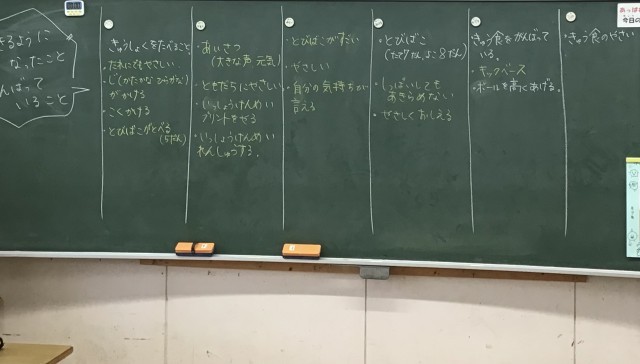 きるように
なったこと
んばって
いること
きゅうしょくをたべること
・だれにでもやさしい
・じ(かたかな ひらがな)
がかける
・こくかける
・とびばこがとべる
(5だん)
・あいさつ
(大きな声 元気)
・ともだちにやさしい
・いっしょうけんめい
プリントをする
・いっしょうけんめい
れんしゅうする。
・とびばこがすごい
・やさしい
・自分の気持ちが
言える
・とびばこ
(たて7だん よこ8だん)
・しっぱいしても
あきらめない
・やさしくおしえる
きゅう食をがんばって
いる。
・キックベース
・ボールを高くあげる。
・きゅう食のやさい
あっぱれ
今日の